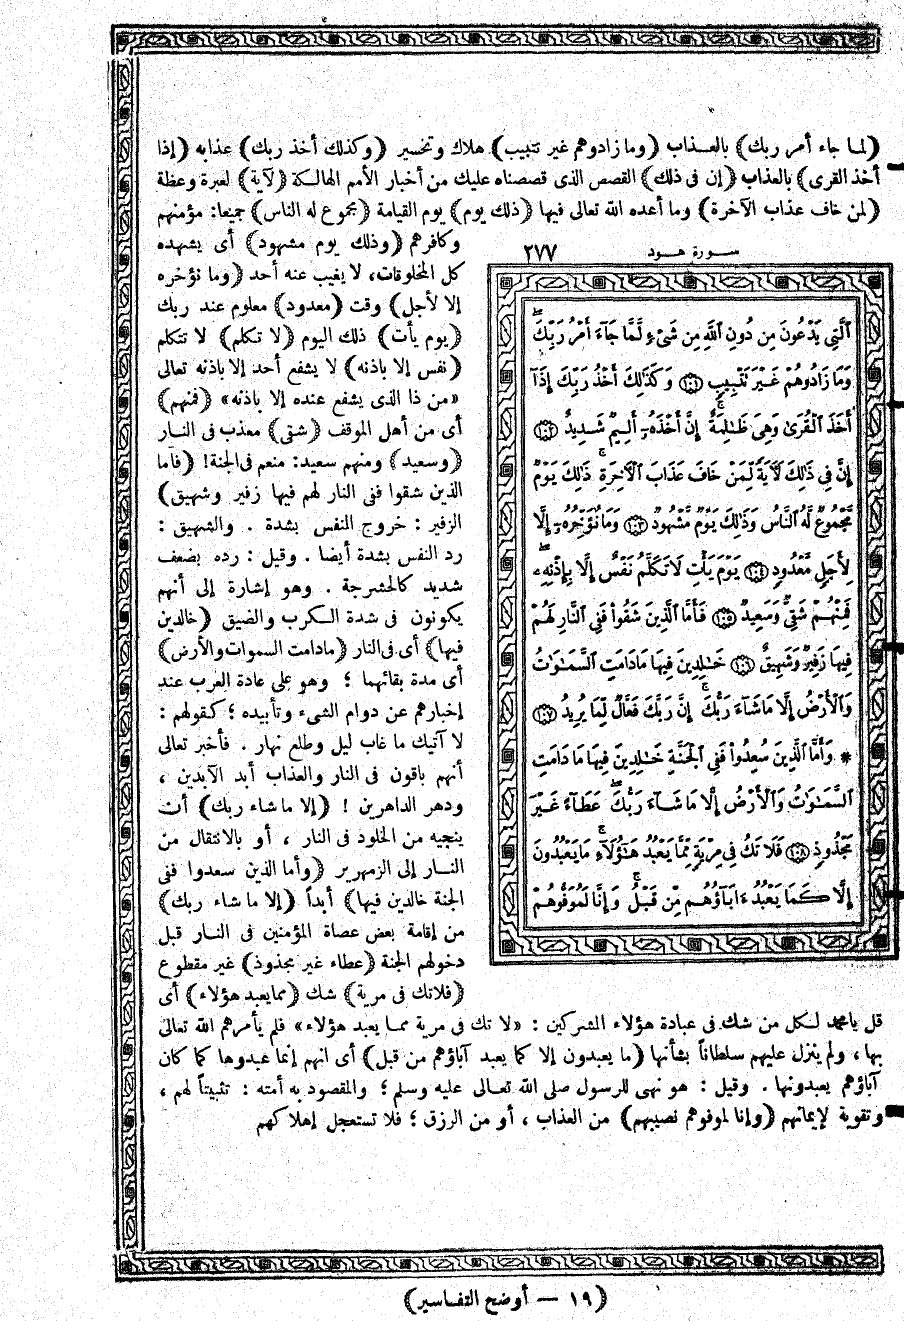 (لما جاء أمر ربك) بالعذاب (وما زادوهم غير تتبيب) هلاك وتخسير (وكذلك أخذ ربك) عذابه (إذا
أخذ القرى) بالعذاب (إن فى ذلك) القصص الذى قصصناه عليك من أخبار الأمم الهالكة (لآية) لعبرة وعظة
(لمن خاف عذاب الآخرة) وما أعده الله تعالى فيها (ذلك يوم) يوم القيامة (مجموع له الناس) جميعا: مؤمنهم
وكافرهم (وذلك يوم مشهود) أى يشهده
كل المخلوقات، لا يغيب عنه أحد (وما نؤخره
إلا لأجل) وقت (معدود) معلوم عند ربك
(يوم يأت) ذلك اليوم (لا تكلم) لا تتكلم
(نفس إلا باذنه) لا يشفع أحد إلا باذنه تعالى
«من ذا الذى يشفع عنده إلا باذنه» (فمنهم)
أى من أهل الموقف (شقى) معذب فى النار
(وسعيد) ومنهم سعيد: منعم فى الجنة! (فأما
الذين شقوا ففى النار لهم فيها زفير وشهيق)
الزفير: خروج النفس بشدة . والشهيق:
رد النفس بشدة أيضا . وقيل: رده بضعف
شديد كالحشرجة . وهو إشارة إلى أنهم
يكونون فى شدة الكرب والضيق (خالدين
فيها) أى فى النار (مادامت السموات والأرض)
أى مدة بقائهما؛ وهو على عادة العرب عند
إخبارهم عن دوام الشىء وتأبيده؛ كقولهم:
لا آتيك ما غاب ليل وطلع نهار . فأخبر تعالى
أنهم باقون فى النار والعذاب أبد الآبدين،
ودهر الداهرين! (إلا ما شاء ربك) أن
ينجيه من الخلود فى النار، أو بالانتقال من
النار إلى الزمهرير (وأما الذين سعدوا ففى
الجنة خالدين فيها) أبداً (إلا ما شاء ربك)
من إقامة بعض عصاة المؤمنين فى النار قبل
دخولهم الجنة (عطاء غير مجذوذ) غير مقطوع
(فلا تك فى مرية) شك (مما يعبد هؤلاء) أى
سورة هود ٢٧٧
ٱلَّتِى يَدْعُونَ مِن دُونِ ٱللَّهِ مِن شَىْءٍ لَّمَّا جَآءَ أَمْرُ رَبِّكَۖ
وَمَا زَادُوهُمْ غَيْرَ تَتْبِيبٍ (١٠١) وَكَذَٰلِكَ أَخْذُ رَبِّكَ إِذَآ
أَخَذَ ٱلْقُرَىٰ وَهِىَ ظَـٰلِمَةٌۚ إِنَّ أَخْذَهُۥٓ أَلِيمٌ شَدِيدٌ (١٠٢)
إِنَّ فِى ذَٰلِكَ لَآيَةً لِّمَنْ خَافَ عَذَابَ ٱلْآخِرَةِۚ ذَٰلِكَ يَوْمٌ
مَّجْمُوعٌ لَّهُ ٱلنَّاسُ وَذَٰلِكَ يَوْمٌ مَّشْهُودٌ (١٠٣) وَمَا نُؤَخِّرُهُۥٓ إِلَّا
لِأَجَلٍ مَّعْدُودٍ (١٠٤) يَوْمَ يَأْتِ لَا تَكَلَّمُ نَفْسٌ إِلَّا بِإِذْنِهِۦۚ
فَمِنْهُمْ شَقِىٌّ وَسَعِيدٌ (١٠٥) فَأَمَّا ٱلَّذِينَ شَقُوا۟ فَفِى ٱلنَّارِ لَهُمْ
فِيهَا زَفِيرٌ وَشَهِيقٌ (١٠٦) خَـٰلِدِينَ فِيهَا مَا دَامَتِ ٱلسَّمَـٰوَٰتُ
وَٱلْأَرْضُ إِلَّا مَا شَآءَ رَبُّكَۚ إِنَّ رَبَّكَ فَعَّالٌ لِّمَا يُرِيدُ (١٠٧)
* وَأَمَّا ٱلَّذِينَ سُعِدُوا۟ فَفِى ٱلْجَنَّةِ خَـٰلِدِينَ فِيهَا مَا دَامَتِ
ٱلسَّمَـٰوَٰتُ وَٱلْأَرْضُ إِلَّا مَا شَآءَ رَبُّكَۖ عَطَآءً غَيْرَ
مَجْذُوذٍ (١٠٨) فَلَا تَكُ فِى مِرْيَةٍ مِّمَّا يَعْبُدُ هَـٰٓؤُلَآءِۚ مَا يَعْبُدُونَ
إِلَّا كَمَا يَعْبُدُ ءَابَآؤُهُم مِّن قَبْلُۚ وَإِنَّا لَمُوَفُّوهُمْ
قل يا محمد لكل من شك فى عبادة هؤلاء المشركين: «لا تك فى مرية مما يعبد هؤلاء» فلم يأمرهم الله تعالى
بها، ولم ينزل عليهم سلطاناً بشأنها (ما يعبدون إلا كما يعبد آباؤهم من قبل) أى انهم إنما عبدوها كما كان
آباؤهم يعبدونها . وقيل: هو نهى للرسول صلى الله تعالى عليه وسلم؛ والمقصود به أمته: تثبيتاً لهم،
وتقوية لإيمانهم (وإنا لموفوهم نصيبهم) من العذاب، أو من الرزق؛ فلا تستعجل إهلاكهم
(١٩ — أوضح التفاسير)